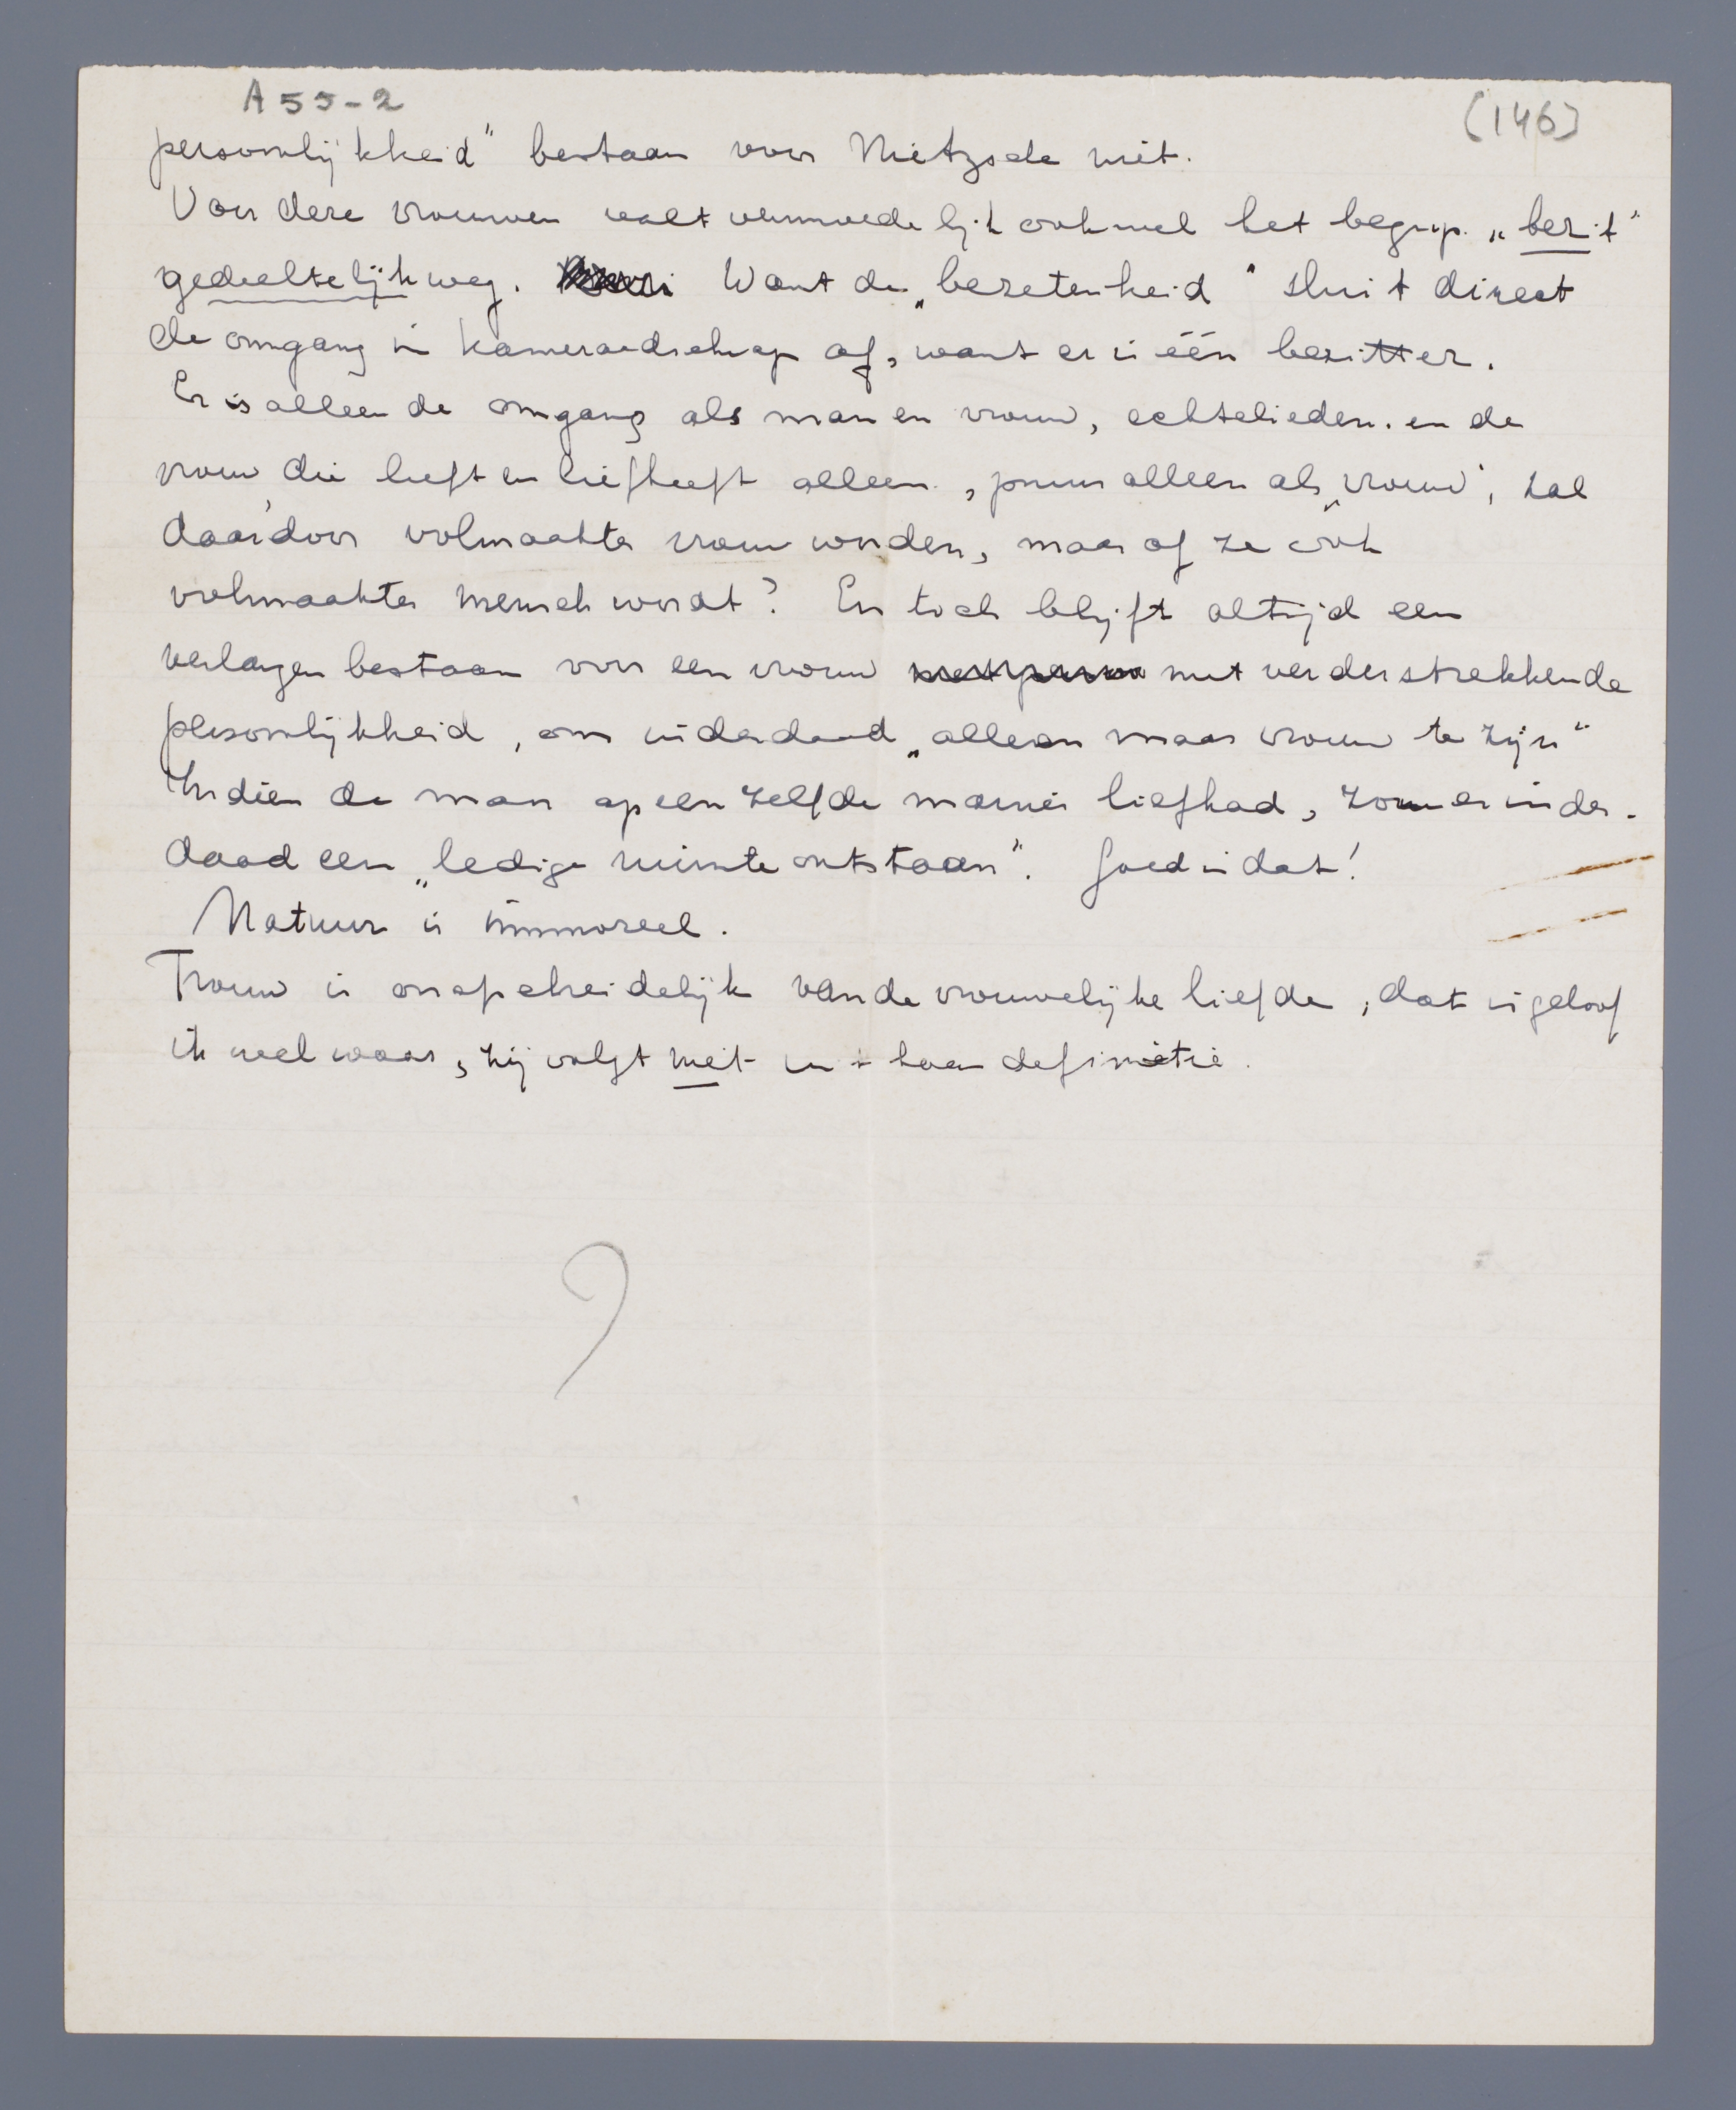 A 55-2
(146)
persoonlijkheid" bestaan voor Nietzsche niet.
Voor deze vrouwen valt vermoedelijk ook wel het begrip „bezit"
gedeeltelijk weg. Want de „bezetenheid" sluit direct
de omgang in kameraadschap af, want er is één bezitter.
Er is alleen de omgang als man en vrouw, echtelieden. en de
vrouw die leeft en liefheeft alleen, puur alleen als „vrouw", zal
daardoor volmaakter vrouw worden, maar of ze ook
volmaakter mensch wordt? En toch blijft altijd een
verlangen bestaan voor een vrouw met verderstrekkende
persoonlijkheid, om inderdaad „alleen maar vrouw te zijn"
Indien de man op een zelfde manier liefhad, zou er inder-
daad een „ledige ruimte ontstaan". Goed is dat!
Natuur is immoreel.
Trouw is onafscheidelijk van de vrouwelijke liefde, dat is geloof
ik wel waar, zij volgt niet uit haar definitie.